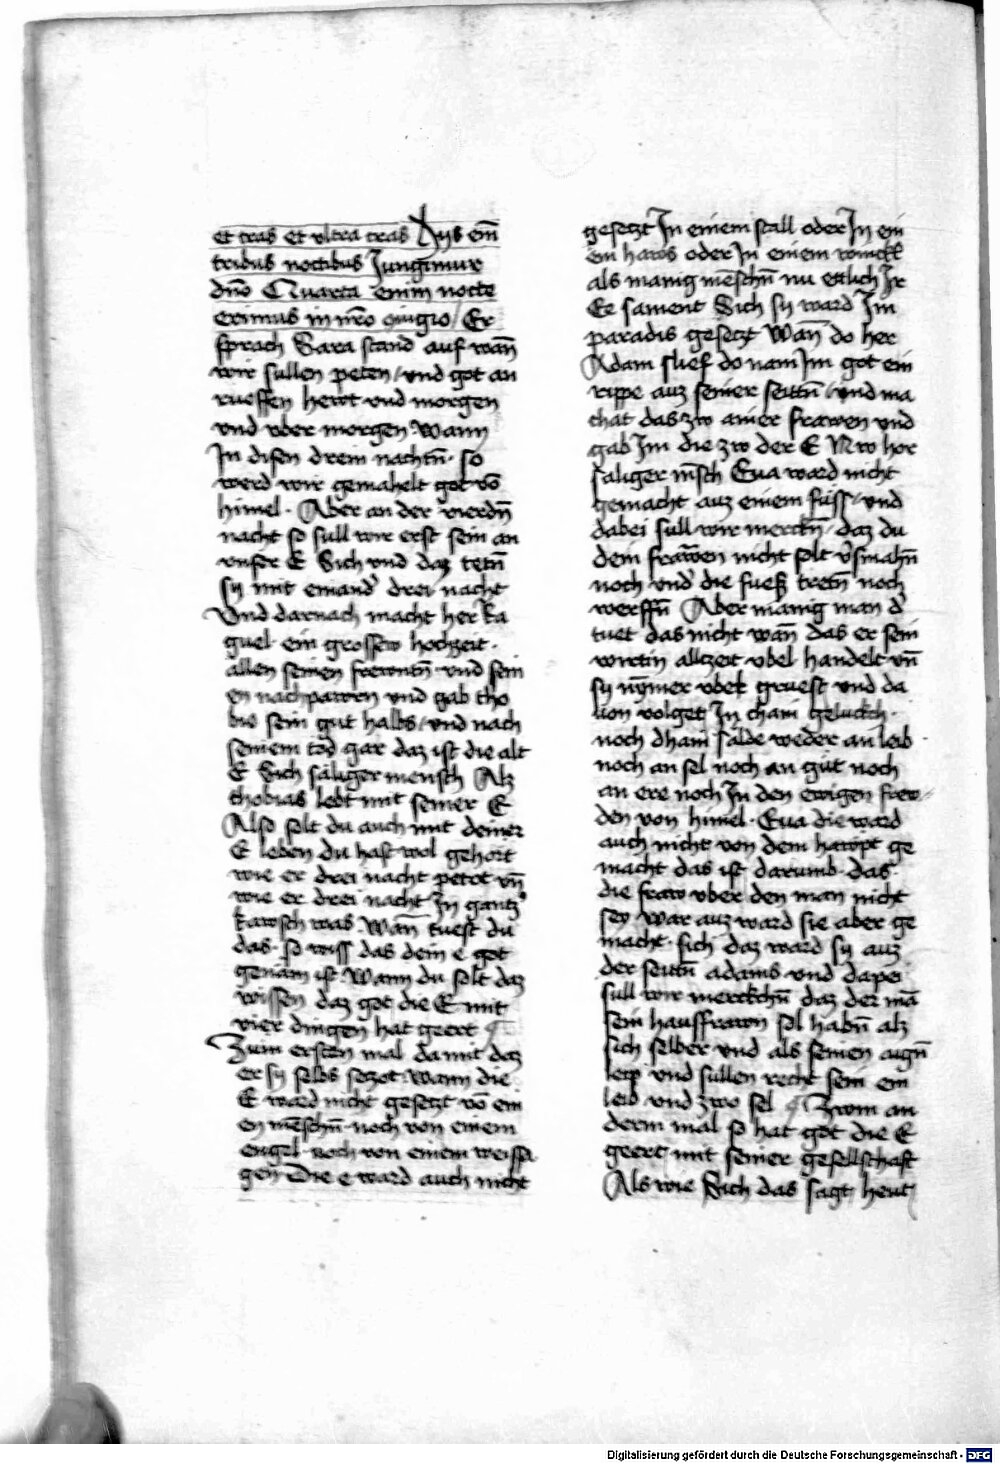 et cras et vltra cras Hijs em̄
tribus noctibus Jungimur
dn̄o Quarta enim nocte
erimus in nr̄o (con)iugio / Er
sprach Sara stand auf wan̄
wir sullen peten / vnd got an
rueffen hewt vnd morgen
vnd vber morgen Wann
In disen drein nachtn̄ · so
werd wir gemahelt got vō
himel · Aber an der vierdn̄
nacht so sull wir erst sein an
vnser E Sich vnd daz tetn̄
sy mit einand' drei nacht
Vnd darnach macht her Ra
guel · ein grossew hochzeit ·
allen seinen frewntn̄ vnd sein
en nachpawrn vnd gab tho
bie sein gut halbs / vnd nach
seinem tod gar daz ist die alt
E Sich säliger mensch Alz
thobias lebt mit seiner E
Also solt du auch mit deiner
E leben du hast wol gehort
wie er drei nacht petet vn̄
wie er drei nacht In gantz'
kawsch was Wan̄ tuest du
das · so wiss das dein e got
genäm ist Wann du solt daz
wissen daz got die E mit
vier dingen hat geert ¶
Zum ersten mal da mit daz
er sy selbs setzet · wann die
E ward nicht gesetzt vō ein
en mēschn̄ · noch von einem
engel · noch von einem weissa
gen Die e ward auch nicht
gesetzt In einem stall oder In ein
ein haws oder In einem winckl
als manig mēschn̄ nu ettlich Ir
Ee sament Sich sy ward Im
paradis gesetzt Wan̄ do her
Adam slief do nam Im got ein
rippe auz seiner seittn̄ / vnd ma
chat das zw ainer frawen vnd
gab Im die zw der E Nw hor
säliger mēsch Eua ward nicht
gemacht auz einem füss / vnd
dabei sull wir merckn̄ · daz du
dein frawen nicht solt v'smahn̄
noch vnd' die fuesz tretn̄ noch
werffn̄ Aber manig man d'
tuet das nicht wan̄ das er sein
wirtin allczeit vbel handelt vn̄
sy nÿmer vbel gruest vnd da
uon volget In chain geluckch ·
noch dhain sälde weder an leib ·
noch an sel noch an gut noch
an ere noch In den ewigen frew
den von himel · Eua die ward
auch nicht von dem hawpt ge
macht das ist darumb · das
die fraw vber den man nicht
sey War auz ward sie aber ge
macht · sich daz ward sy auz
der seittn̄ adams vnd dapei
sull wir merckchn̄ daz der mā
sein hausfrawn sol habn̄ alz
sich selber vnd als seinen aign̄
leip vnd sullen recht sein ein
leib vnd zwo sel ¶ Zwm an
derm mal so hat got die E
geert mit seiner gesellschaft
Als wie Sich das sagt heut
Digitalisierung gefördert durch die Deutsche Forschungsgemeinschaft - DFG